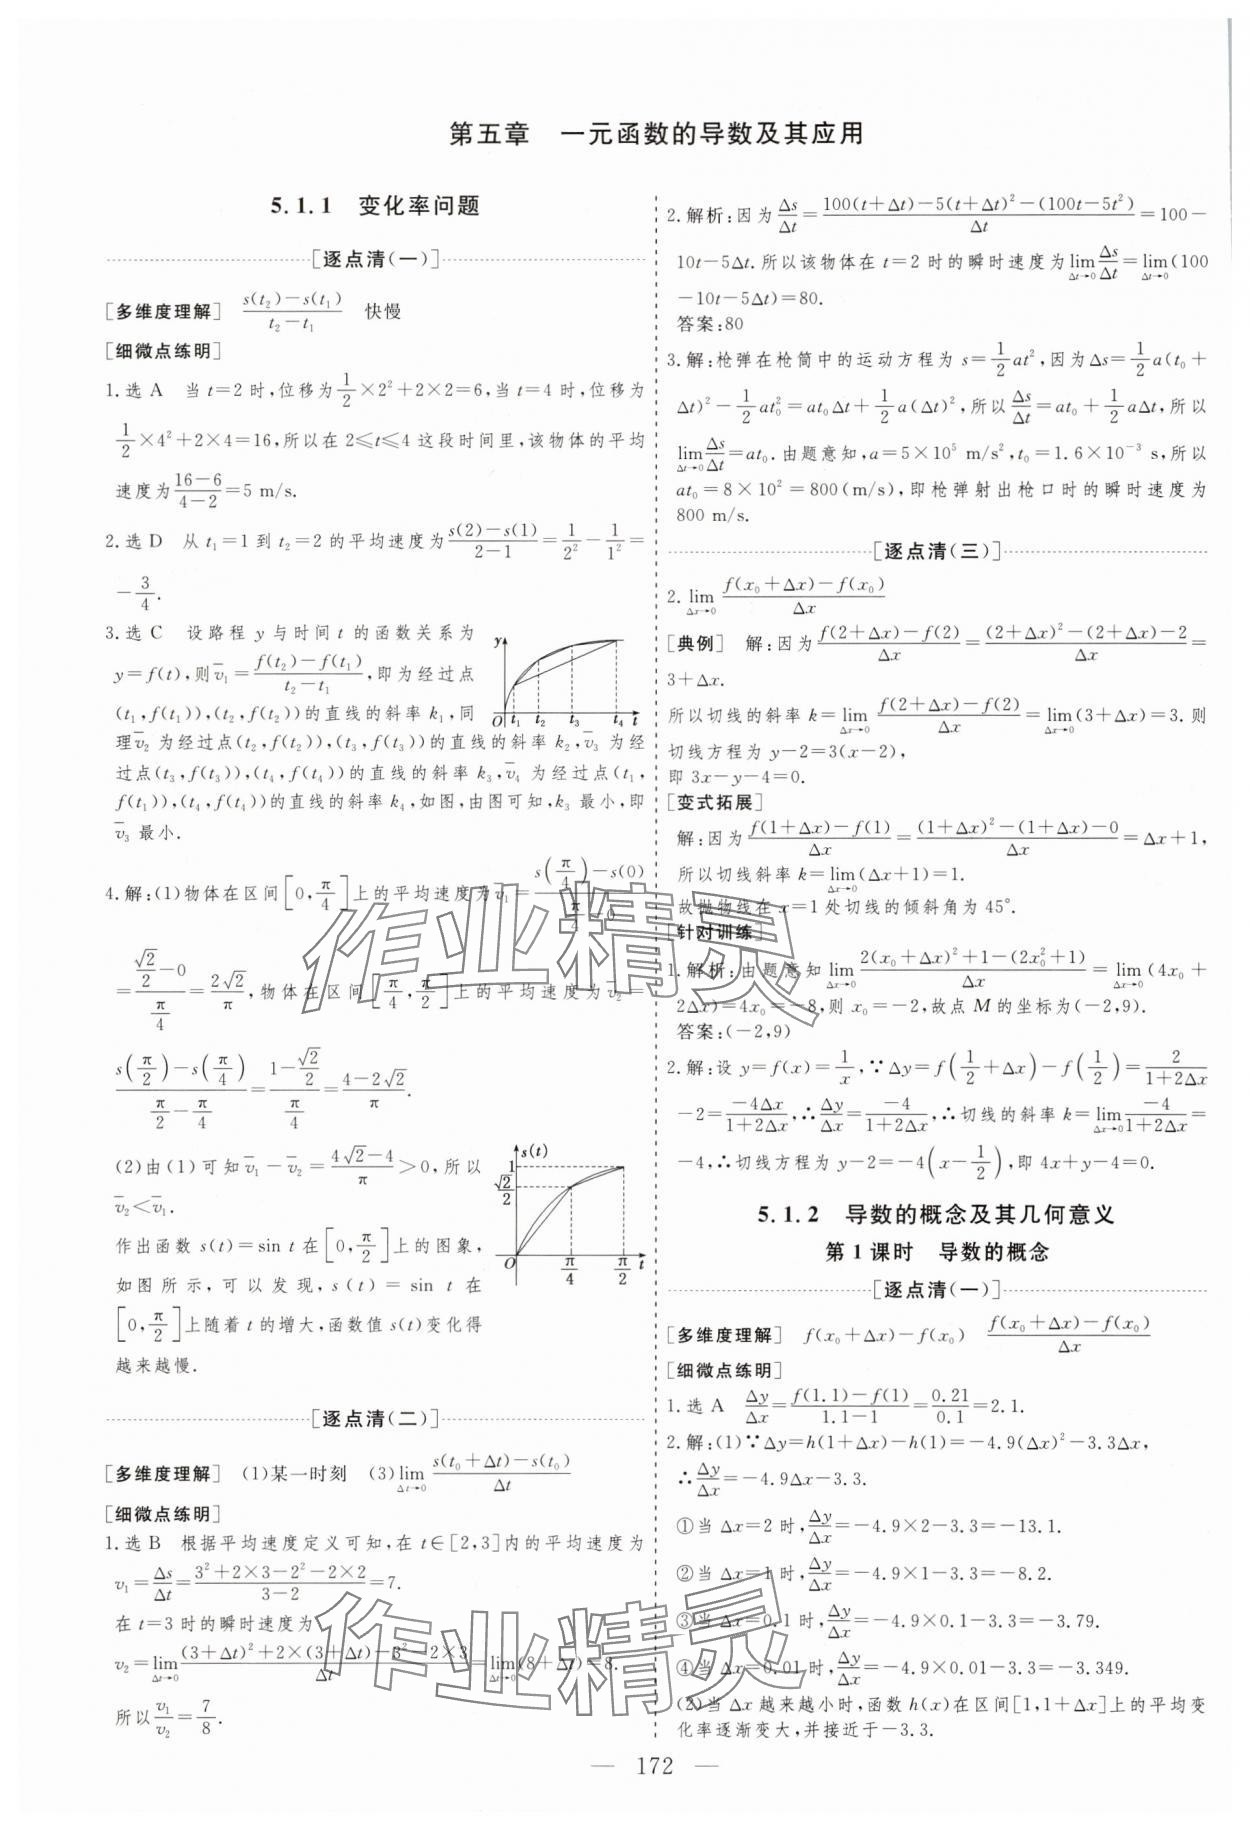 第五章 一元函数的导数及其应用
5.1.1 变化率问题
[逐点清(一)]
[多维度理解] \frac{s(t₂)-s(t₁)}{t₂-t₁} 快慢
[细微点练明]
1.选A 当 t=2 时,位移为\frac{1}{2}×2²+2×2=6,当 t=4 时,位移为
\frac{1}{2}×4²+2×4=16,所以在 2⩽t⩽4 这段时间里,该物体的平均
速度为\frac{16-6}{4-2}=5 m/s.
2.选D 从 t₁=1 到 t₂=2 的平均速度为\frac{s(2)-s(1)}{2-1}=\frac{1}{2²}-\frac{1}{1²}=
-\frac{3}{4}.
3.选C 设路程 y 与时间 t 的函数关系为
y=f(t),则\bar{v}₁=\frac{f(t₂)-f(t₁)}{t₂-t₁},即为经过点
(t₁,f(t₁)),(t₂,f(t₂))的直线的斜率 k₁,同
理\bar{v}₂ 为经过点(t₂,f(t₂)),(t₃,f(t₃))的直线的斜率 k₂,\bar{v}₃ 为经
过点(t₃,f(t₃)),(t₄,f(t₄))的直线的斜率 k₃,\bar{v}₄ 为经过点(t₁,
f(t₁)),(t₄,f(t₄))的直线的斜率 k₄,如图,由图可知,k₃ 最小,即
\bar{v}₃ 最小.
y
O t₁ t₂ t₃ t₄ t
4.解:(1)物体在区间[0,\frac{π}{4}]上的平均速度为\bar{v}₁=\frac{s(\frac{π}{4})-s(0)}{\frac{π}{4}-0}
=\frac{\frac{\sqrt{2}}{2}-0}{\frac{π}{4}}=\frac{2\sqrt{2}}{π},物体在区间[\frac{π}{4},\frac{π}{2}]上的平均速度为\bar{v}₂=
\frac{s(\frac{π}{2})-s(\frac{π}{4})}{\frac{π}{2}-\frac{π}{4}}=\frac{1-\frac{\sqrt{2}}{2}}{\frac{π}{4}}=\frac{4-2\sqrt{2}}{π}.
(2)由(1)可知\bar{v}₁-\bar{v}₂=\frac{4\sqrt{2}-4}{π}>0,所以
\bar{v}₂<\bar{v}₁.
作出函数 s(t)=sin t 在[0,\frac{π}{2}]上的图象,
如图所示,可以发现,s(t)=sin t 在
[0,\frac{π}{2}]上随着 t 的增大,函数值 s(t)变化得
越来越慢.
s(t)
1
\frac{\sqrt{2}}{2}
O \frac{π}{4} \frac{π}{2} t
[逐点清(二)]
[多维度理解] (1)某一时刻 (3)\lim_{Δt→0}\frac{s(t₀+Δt)-s(t₀)}{Δt}
[细微点练明]
1.选B 根据平均速度定义可知,在 t∈[2,3]内的平均速度为
v₁=\frac{Δs}{Δt}=\frac{3²+2×3-2²-2×2}{3-2}=7.
在 t=3 时的瞬时速度为
v₂=\lim_{Δt→0}\frac{(3+Δt)²+2×(3+Δt)-3²-2×3}{Δt}=\lim_{Δt→0}(8+Δt)=8.
所以\frac{v₁}{v₂}=\frac{7}{8}.
2.解析:因为\frac{Δs}{Δt}=\frac{100(t+Δt)-5(t+Δt)²-(100t-5t²)}{Δt}=100-
10t-5Δt.所以该物体在 t=2 时的瞬时速度为\lim_{Δt→0}\frac{Δs}{Δt}=\lim_{Δt→0}(100
-10t-5Δt)=80.
答案:80
3.解:枪弹在枪筒中的运动方程为 s=\frac{1}{2}at²,因为Δs=\frac{1}{2}a(t₀+
Δt)²-\frac{1}{2}at₀²=at₀Δt+\frac{1}{2}a(Δt)²,所以\frac{Δs}{Δt}=at₀+\frac{1}{2}aΔt,所以
\lim_{Δt→0}\frac{Δs}{Δt}=at₀.由题意知,a=5×10⁵ m/s²,t₀=1.6×10⁻³ s,所以
at₀=8×10²=800(m/s),即枪弹射出枪口时的瞬时速度为
800 m/s.
[逐点清(三)]
2.\lim_{Δx→0}\frac{f(x₀+Δx)-f(x₀)}{Δx}
[典例] 解:因为\frac{f(2+Δx)-f(2)}{Δx}=\frac{(2+Δx)²-(2+Δx)-2}{Δx}=
3+Δx.
所以切线的斜率 k=\lim_{Δx→0}\frac{f(2+Δx)-f(2)}{Δx}=\lim_{Δx→0}(3+Δx)=3.则
切线方程为 y-2=3(x-2),
即 3x-y-4=0.
[变式拓展]
解:因为\frac{f(1+Δx)-f(1)}{Δx}=\frac{(1+Δx)²-(1+Δx)-0}{Δx}=Δx+1,
所以切线斜率 k=\lim_{Δx→0}(Δx+1)=1.
故抛物线在 x=1 处切线的倾斜角为 45°.
[针对训练]
1.解析:由题意知\lim_{Δx→0}\frac{2(x₀+Δx)²+1-(2x₀²+1)}{Δx}=\lim_{Δx→0}(4x₀+
2Δx)=4x₀=-8,则 x₀=-2,故点 M 的坐标为(-2,9).
答案:(-2,9)
2.解:设 y=f(x)=\frac{1}{x},∵Δy=f(\frac{1}{2}+Δx)-f(\frac{1}{2})=\frac{2}{1+2Δx}
-2=\frac{-4Δx}{1+2Δx},∴\frac{Δy}{Δx}=\frac{-4}{1+2Δx},∴切线的斜率 k=\lim_{Δx→0}\frac{-4}{1+2Δx}=
-4,∴切线方程为 y-2=-4(x-\frac{1}{2}),即 4x+y-4=0.
5.1.2 导数的概念及其几何意义
第1课时 导数的概念
[逐点清(一)]
[多维度理解] f(x₀+Δx)-f(x₀) \frac{f(x₀+Δx)-f(x₀)}{Δx}
[细微点练明]
1.选A \frac{Δy}{Δx}=\frac{f(1.1)-f(1)}{1.1-1}=\frac{0.21}{0.1}=2.1.
2.解:(1)∵Δy=h(1+Δx)-h(1)=-4.9(Δx)²-3.3Δx,
∴\frac{Δy}{Δx}=-4.9Δx-3.3.
①当 Δx=2 时,\frac{Δy}{Δx}=-4.9×2-3.3=-13.1.
②当 Δx=1 时,\frac{Δy}{Δx}=-4.9×1-3.3=-8.2.
③当 Δx=0.1 时,\frac{Δy}{Δx}=-4.9×0.1-3.3=-3.79.
④当 Δx=0.01 时,\frac{Δy}{Δx}=-4.9×0.01-3.3=-3.349.
(2)当 Δx 越来越小时,函数 h(x)在区间[1,1+Δx]上的平均变
化率逐渐变大,并接近于-3.3.
— 172 —
作业精灵
作业精灵